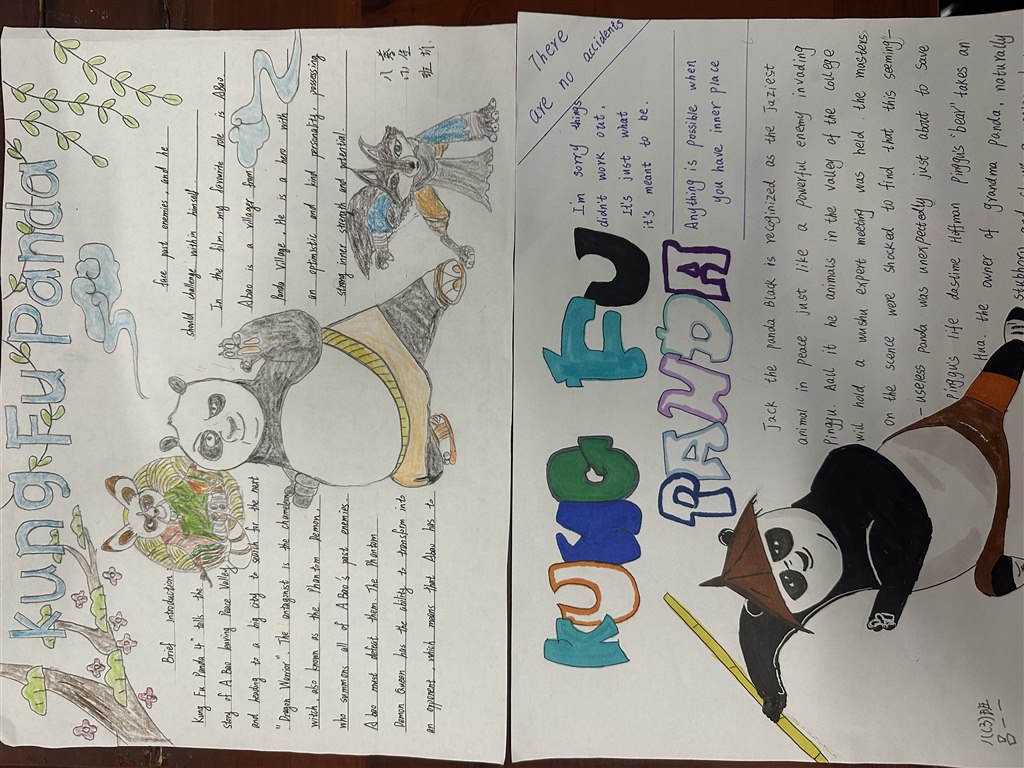 Kung Fu Panda
Brief Introduction
"Kung Fu Panda 4" tells the
story of A Bao leaving Peace Valley
and heading to a big city to search for the next
"Dragon Warrior". The antagonist is the chameleon
witch, also known as the Phantom Demon,
who summons all of A Bao's past enemies.
A bao must defeat them The Phantom
Demon Queen has the ability to transform into
an opponent, which means that Abao has to
face past enemies, and he
should challenge within himself.
In the film, my favorite role is Abao.
Abao is a villager from
Panda Village. He is a hero with
an optimistic and kind personality, possessing
strong inner strength and potential.
八
班
There
are no accidents
I'm sorry things
didn't work out,
It's just what
it's meant to be.
Anything is possible when
you have inner place
KUNG FU
PANDA
Jack the panda Black is recoginized as the Jaziest
animal in peace just like a powerful enemy invading
Pingju Aail it he animals in the valley of the college
will hold a wushu expert meeting was held. the masters.
on the scence were shocked to find that this seeming-
-useless panda was unexpectedly just about to save
Pinggus life dastime Hoffman Pinggus 'bear' takes an
Hua. the owner of grandma panda, naturally
stubborn and
八(3)班
吕一一